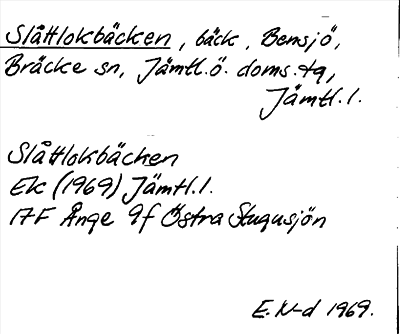 Slåttlokbäcken, bäck, Bensjö,
Bräcke sn, Jämtl.ö. doms.tq,
Jämtl.l.
Slåttlokbäcken
Ek (1969) Jämtl.l.
17F Ånge 9f Östra Stugusjön
E.N-d 1969.